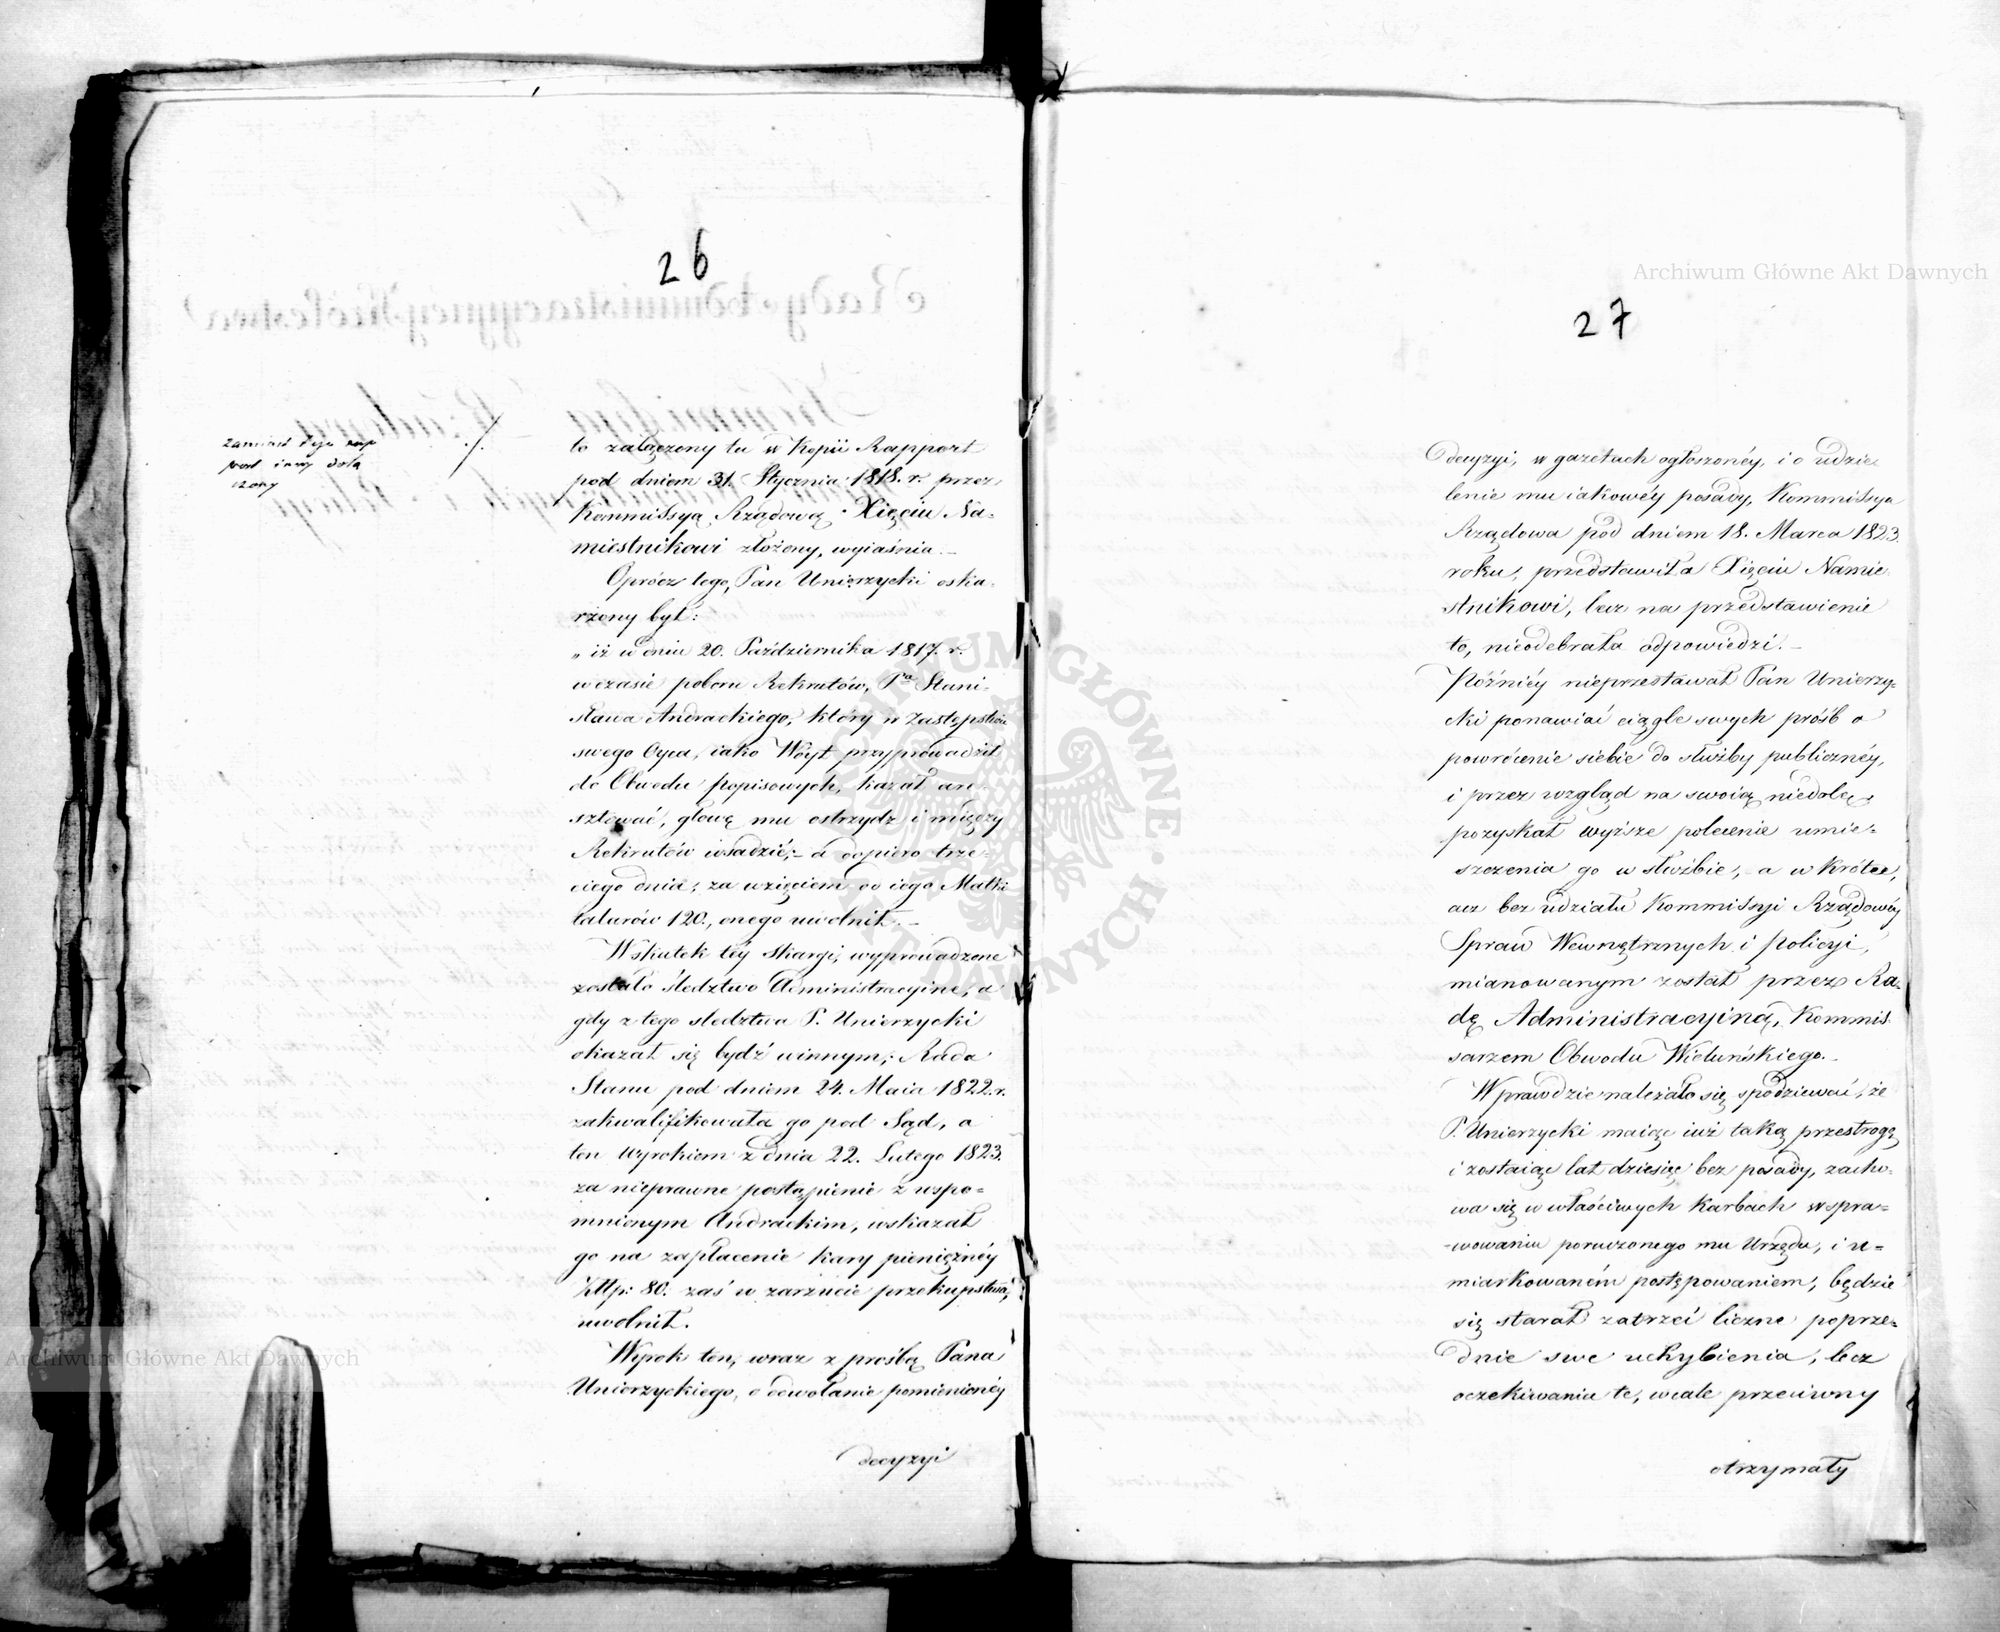 26
zamiast tego rap
port inny dołą
czony
./.
to załączony tu w Kopii Rapport
pod dniem 31. Stycznia 1818. r. przez
Kommissyą Rządową Xięciu Na-
miestnikowi złożony, wyiaśnia. –
Oprócz tego, Pan Unierzycki oska-
rżony był:
„ iż w dniu 20. Października 1817. r.
w czasie poboru Rekrutów, Pa Stani-
sława Andrackiego, który w zastępstwie
swego Oyca, iako Wóyt przyprowadził
do Obwodu popisowych, kazał are-
sztować, głowę mu ostrzydz i między
Rekrutów wsadzić; – a dopiero trze-
ciego dnia, za wzięciem od iego Matki
talarów 120., onego uwolnił. –
Wskutek téy skargi, wyprowadzone
zostało śledztwo Administracyine, a
gdy z tego śledztwa P. Unierzycki
okazał się bydź winnym; Rada
Stanu pod dniem 24. Maia 1822. r.
zakwalifikowała go pod Sąd, a
ten wyrokiem z dnia 22. Lutego 1823.
za nieprawne postąpienie z wspo-
mnionym Andrackim, wskazał
go na zapłacenie kary pieniężnéy
Złłp: 80. zaś w zarzucie przekupstwa,
uwolnił.
Wyrok ten, wraz z prośbą Pana
Unierzyckiego, o odwołanie pomienionéy
decyzyi
27
decyzyi, w gazetach ogłoszonéy, i o udzie-
lenie mu iakowéy posady, Kommissya
Rządowa pod dniem 18. Marca 1823.
roku, przedstawiła Xięciu Namie-
stnikowi, lecz na przedstawienie
to, nieodebrała odpowiedzi. –
Późniéy nieprzestawał Pan Unierzy-
cki ponawiać ciągle swych próśb o
powrócenie siebie do służby publicznéy,
i przez wzgląd na swoią niedolę,
pozyskał wyższe polecenie umie-
szczenia go w służbie, – a w krótce,
acz bez udziału Kommissyi Rządowéy
Spraw Wewnętrznych i Policyi,
mianowanym został przez Ra-
dę Administracyiną, Kommis-
sarzem Obwodu Wieluńskiego. –
Wprawdzie należało się spodziewać, że
P. Unierzycki maiąc iuż taką przestrogę
i zostaiąc lat dziesięć bez posady, zacho-
wa się w właściwych karbach w spra-
wowaniu poruczonego mu Urzędu, i u-
miarkowaném postępowaniem, będzie
się starał zatrzeć liczne poprze-
dnie swe uchybienia, lecz
oczekiwania te, wcale przeciwny
otrzymały
Archiwum Główne Akt Dawnych
Archiwum Główne Akt Dawnych
ARCHIWUM GŁÓWNE AKT DAWNYCH